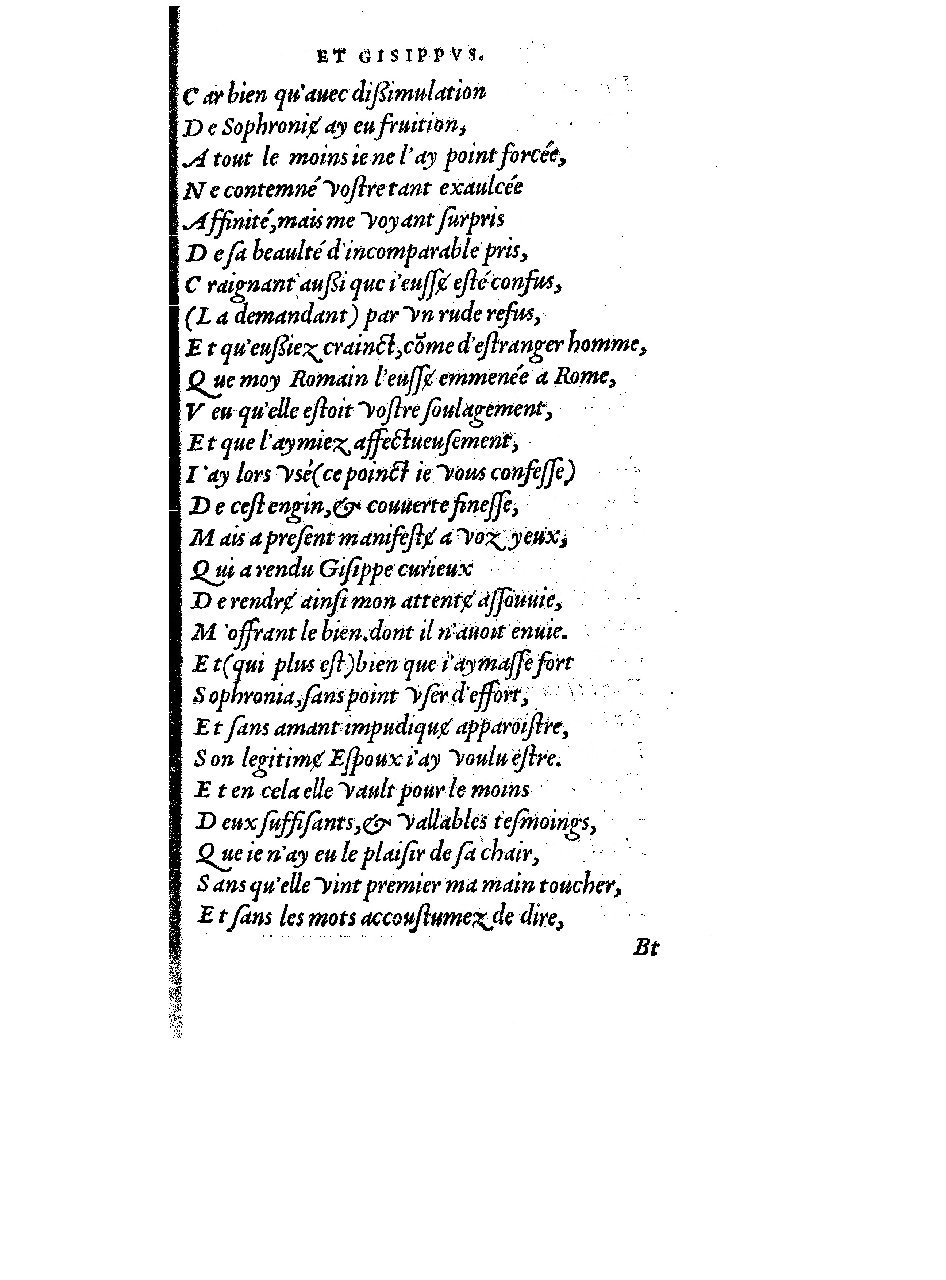 ET GISIPPVS.
Car bien qu'auec dißimulation
De Sophroniɇ ay eu fruition,
A tout le moins ie ne l'ay point forcée,
Ne contemné voſtre tant exaulcée
Affinité, mais me voyant ſurpris
De ſa beaulté d'incomparable pris,
Craignant außi que i'euſſɇ eſté confus,
(La demandant) par vn rude refus,
Et qu'eußiez crainct, cõme d'eſtranger homme,
Que moy Romain l'euſſɇ emmenée a Rome,
Veu qu'elle eſtoit voſtre ſoulagement,
Et que l'aymiez affectueuſement,
I'ay lors vsé (ce poinct ie vous confeſſe)
De ceſt engin, & couuerte fineſſe,
Mais a preſent manifeſtɇ a voz yeux,
Qui a rendu Giſippe curieux
De rendrɇ ainſi mon attentɇ aſſouuie,
M'offrant le bien, dont il n'auoit enuie.
Et (qui plus eſt) bien que i'aymaſſe fort
Sophronia, ſans point vſer d'effort,
Et ſans amant impudiquɇ apparoiſtre,
Son legitimɇ Eſpoux i'ay voulu eſtre.
Et en cela elle vault pour le moins
Deux ſuffiſants, & vallables teſmoings,
Que ie n'ay eu le plaiſir de ſa chair,
Sans qu'elle vint premier ma main toucher,
Et ſans les mots accouſtumez de dire,
Et